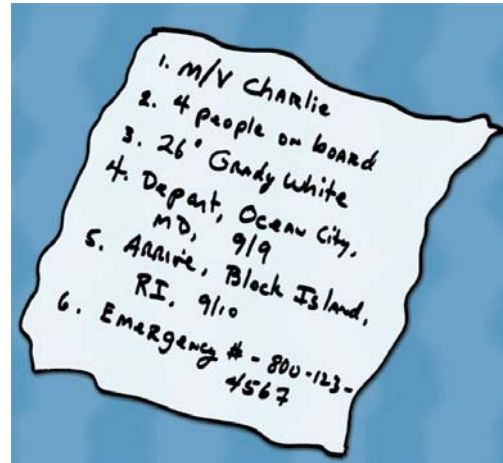 1. M/V Charlie
2. 4 people on board
3. 26' Grady White
4. Depart, Ocean City,
MD, 9/9
5. Arrive, Block Island,
RI, 9/10
6. Emergency # - 800-123-
4567